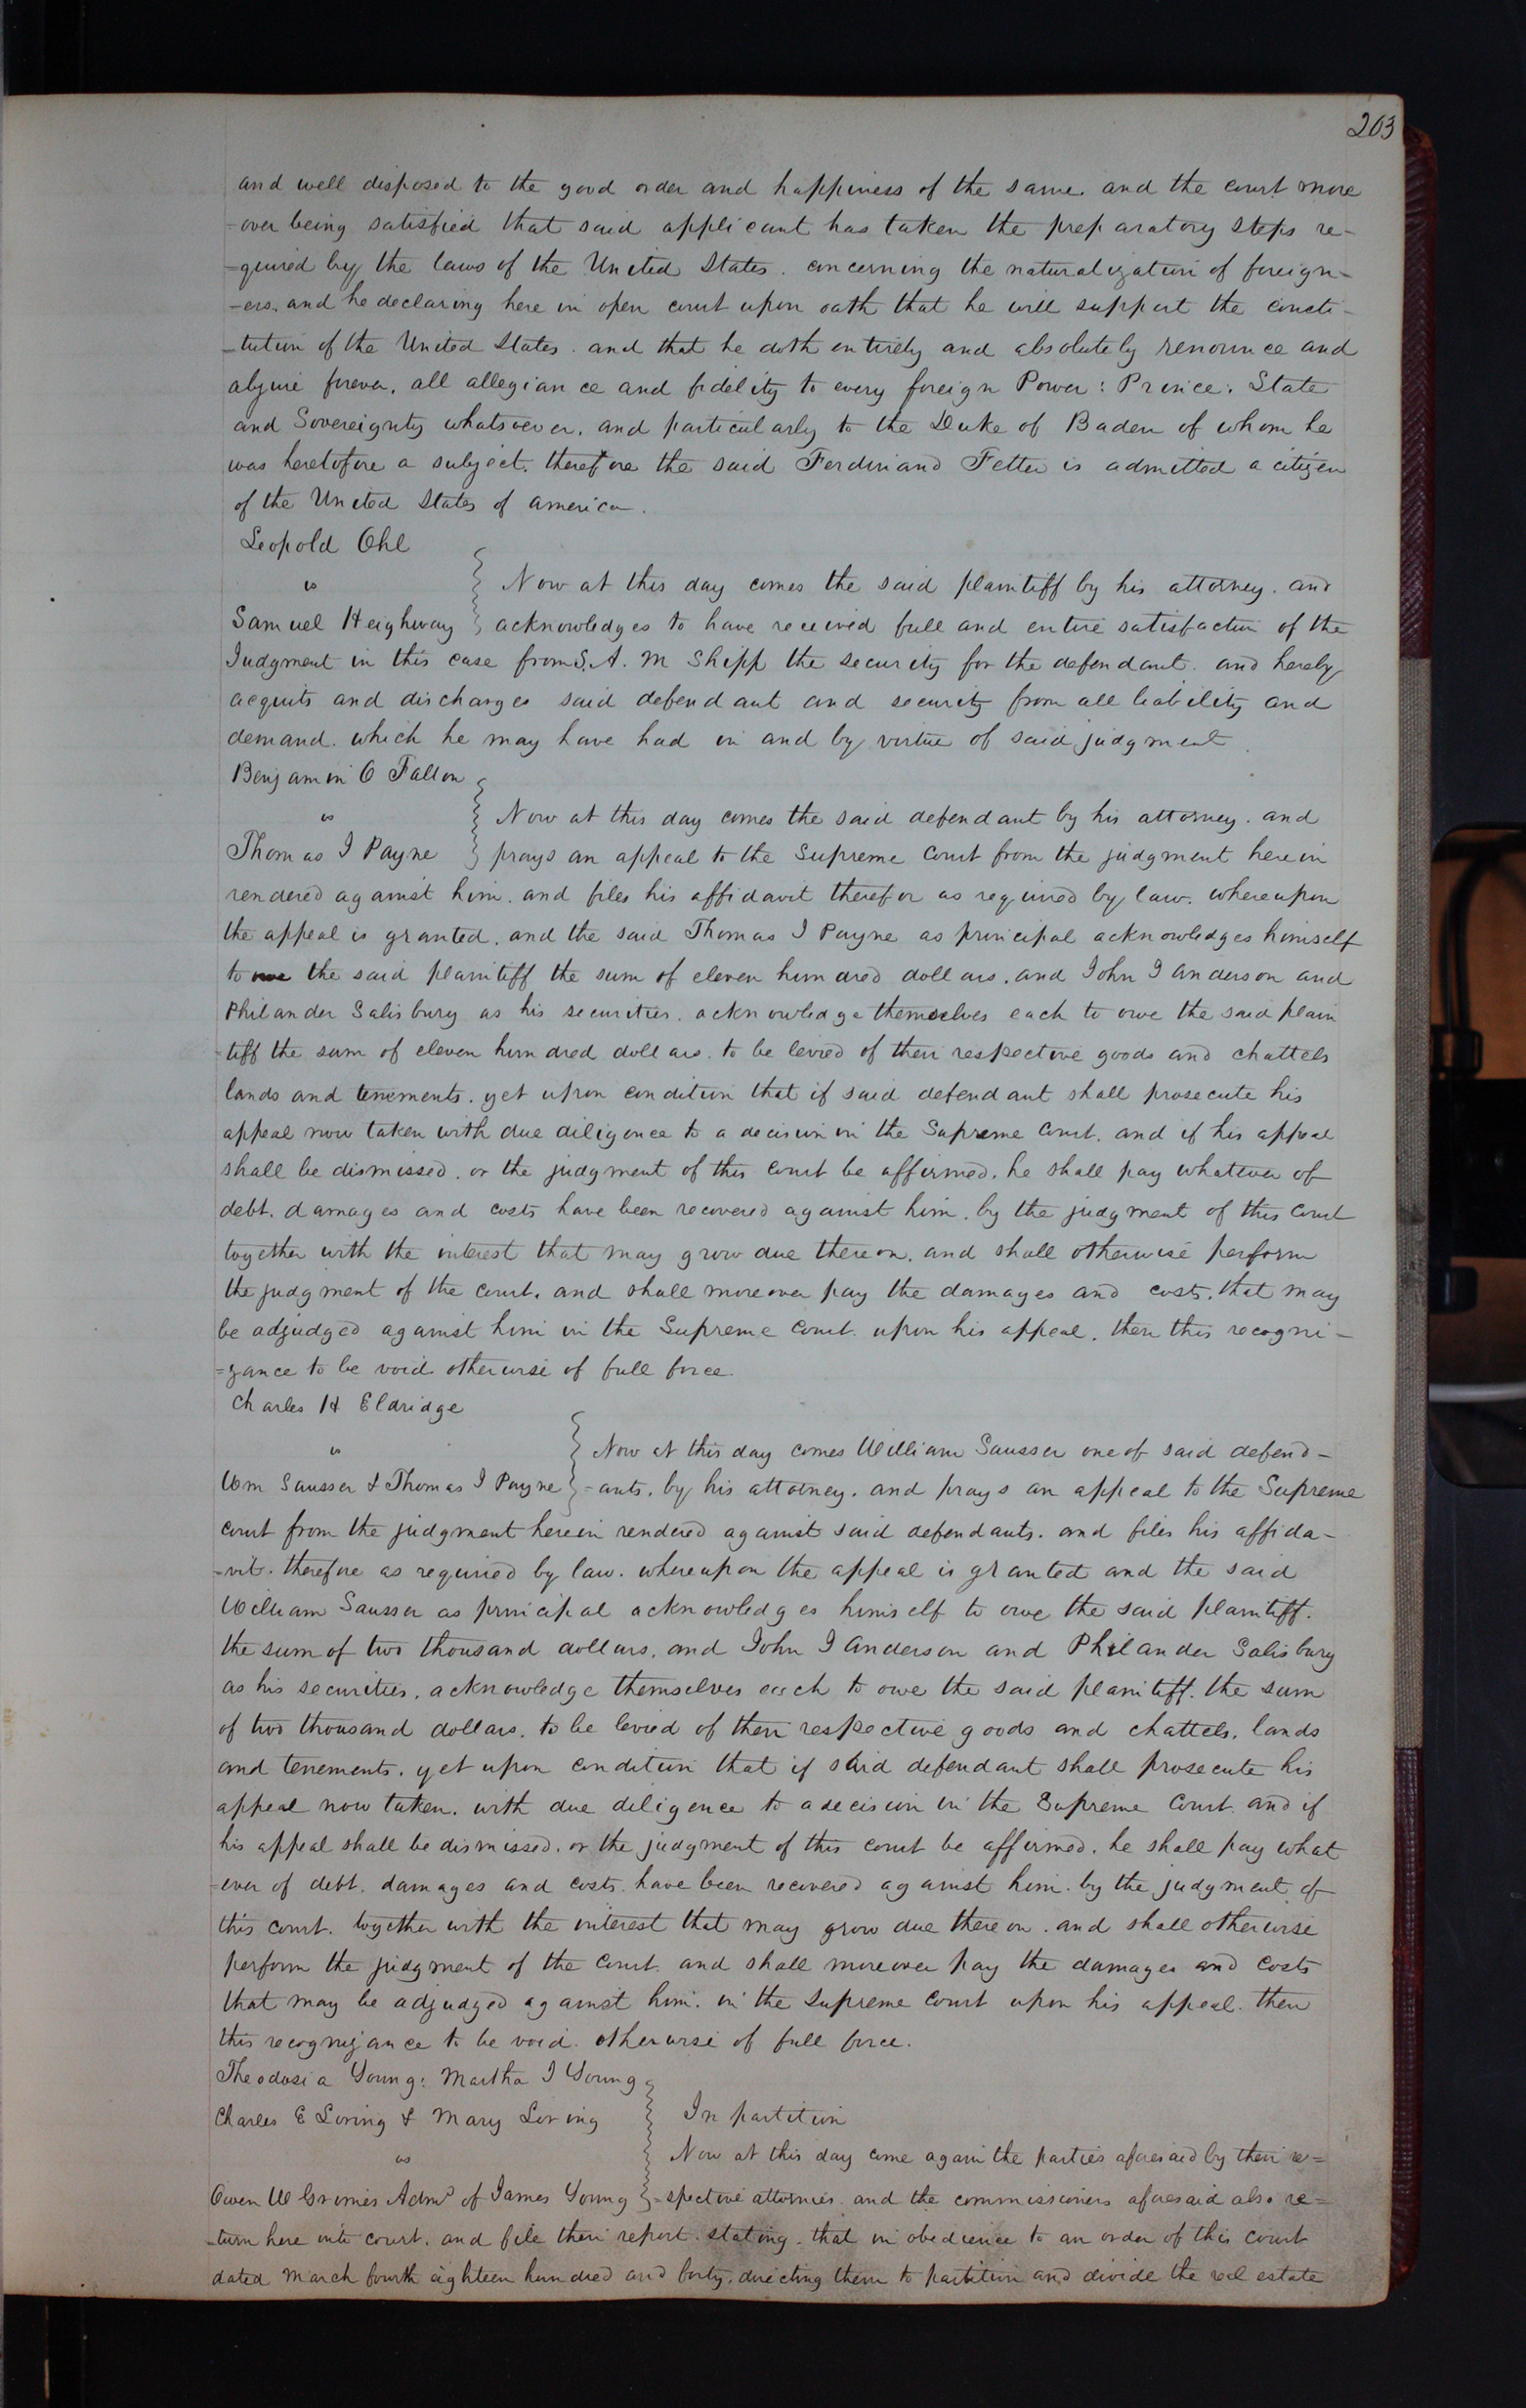 203
and well disposed to the good order and happiness of the same. and the court more
-over being satisfied that said applicant has taken the preparatory steps re-
-quired by the laws of the United States. concerning the naturalization of foreign-
-ers. and he declaring here in open court upon oath that he will support the consti-
-tution of the United States. and that he doth entirely and absolutely renounce and
abjure forever. all allegiance and fidelity to every foreign Power: Prince: State
and Sovereignty whatsoever. and particularly to the Duke of Baden of whom he
was heretofore a subject. therefore the said Ferdinand Fetter is admitted a citizen
of the United States of america.
Leopold Ohl
vs
Samuel Heighway
Now at this day comes the said plaintiff by his attorney. and
acknowledges to have received full and entire satisfaction of the
Judgment in this case from S. A. M Shipp the security for the defendant. and hereby
acquits and discharges said defendant and security from all liability and
demand. which he may have had in and by virtue of said judgment.
Benjamin O Fallon
vs
Thomas I Payne
Now at this day comes the said defendant by his attorney. and
prays an appeal to the Supreme Court from the judgment herein
rendered against him. and files his affidavit therefor as required by law. whereupon
the appeal is granted. and the said Thomas I Payne as principal acknowledges himself
to owe the said plaintiff the sum of eleven hundred dollars. and John I Anderson and
Philander Salisbury as his securities. acknowledge themselves each to owe the said plain
-tiff the sum of eleven hundred dollars. to be levied of their respective goods and chattels
lands and tenements. yet upon condition that if said defendant shall prosecute his
appeal now taken with due diligence to a decision in the Supreme Court. and if his appeal
shall be dismissed. or the judgment of this court be affirmed. he shall pay whatever of
debt. damages and costs have been recovered against him. by the judgment of this Court
together with the interest that may grow due thereon. and shall otherwise perform
the judgment of the court. and shall moreover pay the damages and costs. that may
be adjudged against him in the Supreme Court. upon his appeal. then this recogni-
-zance to be void otherwise of full force.
Charles H Eldridge
vs
Wm Sausser & Thomas I Payne
Now at this day comes William Sausser one of said defend-
-ants. by his attorney. and prays an appeal to the Supreme
court from the judgment herein rendered against said defendants. and files his affida-
-vit. therefore as required by law. whereupon the appeal is granted and the said
William Sausser as principal acknowledges himself to owe the said plaintiff.
the sum of two thousand dollars. and John I Anderson and Philander Salisbury
as his securities. acknowledge themselves each to owe the said plaintiff. the sum
of two thousand dollars. to be levied of their respective goods and chattels. lands
and tenements. yet upon condition that if said defendant shall prosecute his
appeal now taken. with due diligence to a decision in the Supreme Court. and if
his appeal shall be dismissed. or the judgment of this court be affirmed. he shall pay what
-ever of debt. damages and costs. have been recovered against him. by the judgment of
this court. together with the interest that may grow due thereon. and shall otherwise
perform the judgment of the Court. and shall moreover pay the damages and costs
that may be adjudged against him. in the Supreme Court upon his appeal. then
this recognizance to be void. otherwise of full force.
Theodosia Young: Martha I Young
Charles E Loring & Mary Loring
vs
Owen W Grimes Admr of James Young
In partition
Now at this day come again the parties aforesaid by their re=
=spective attornies. and the commissioners aforesaid also re=
-turn here into court. and file their report. stating. that in obedience to an order of this court
dated March fourth eighteen hundred and forty. directing them to partition and divide the real estate